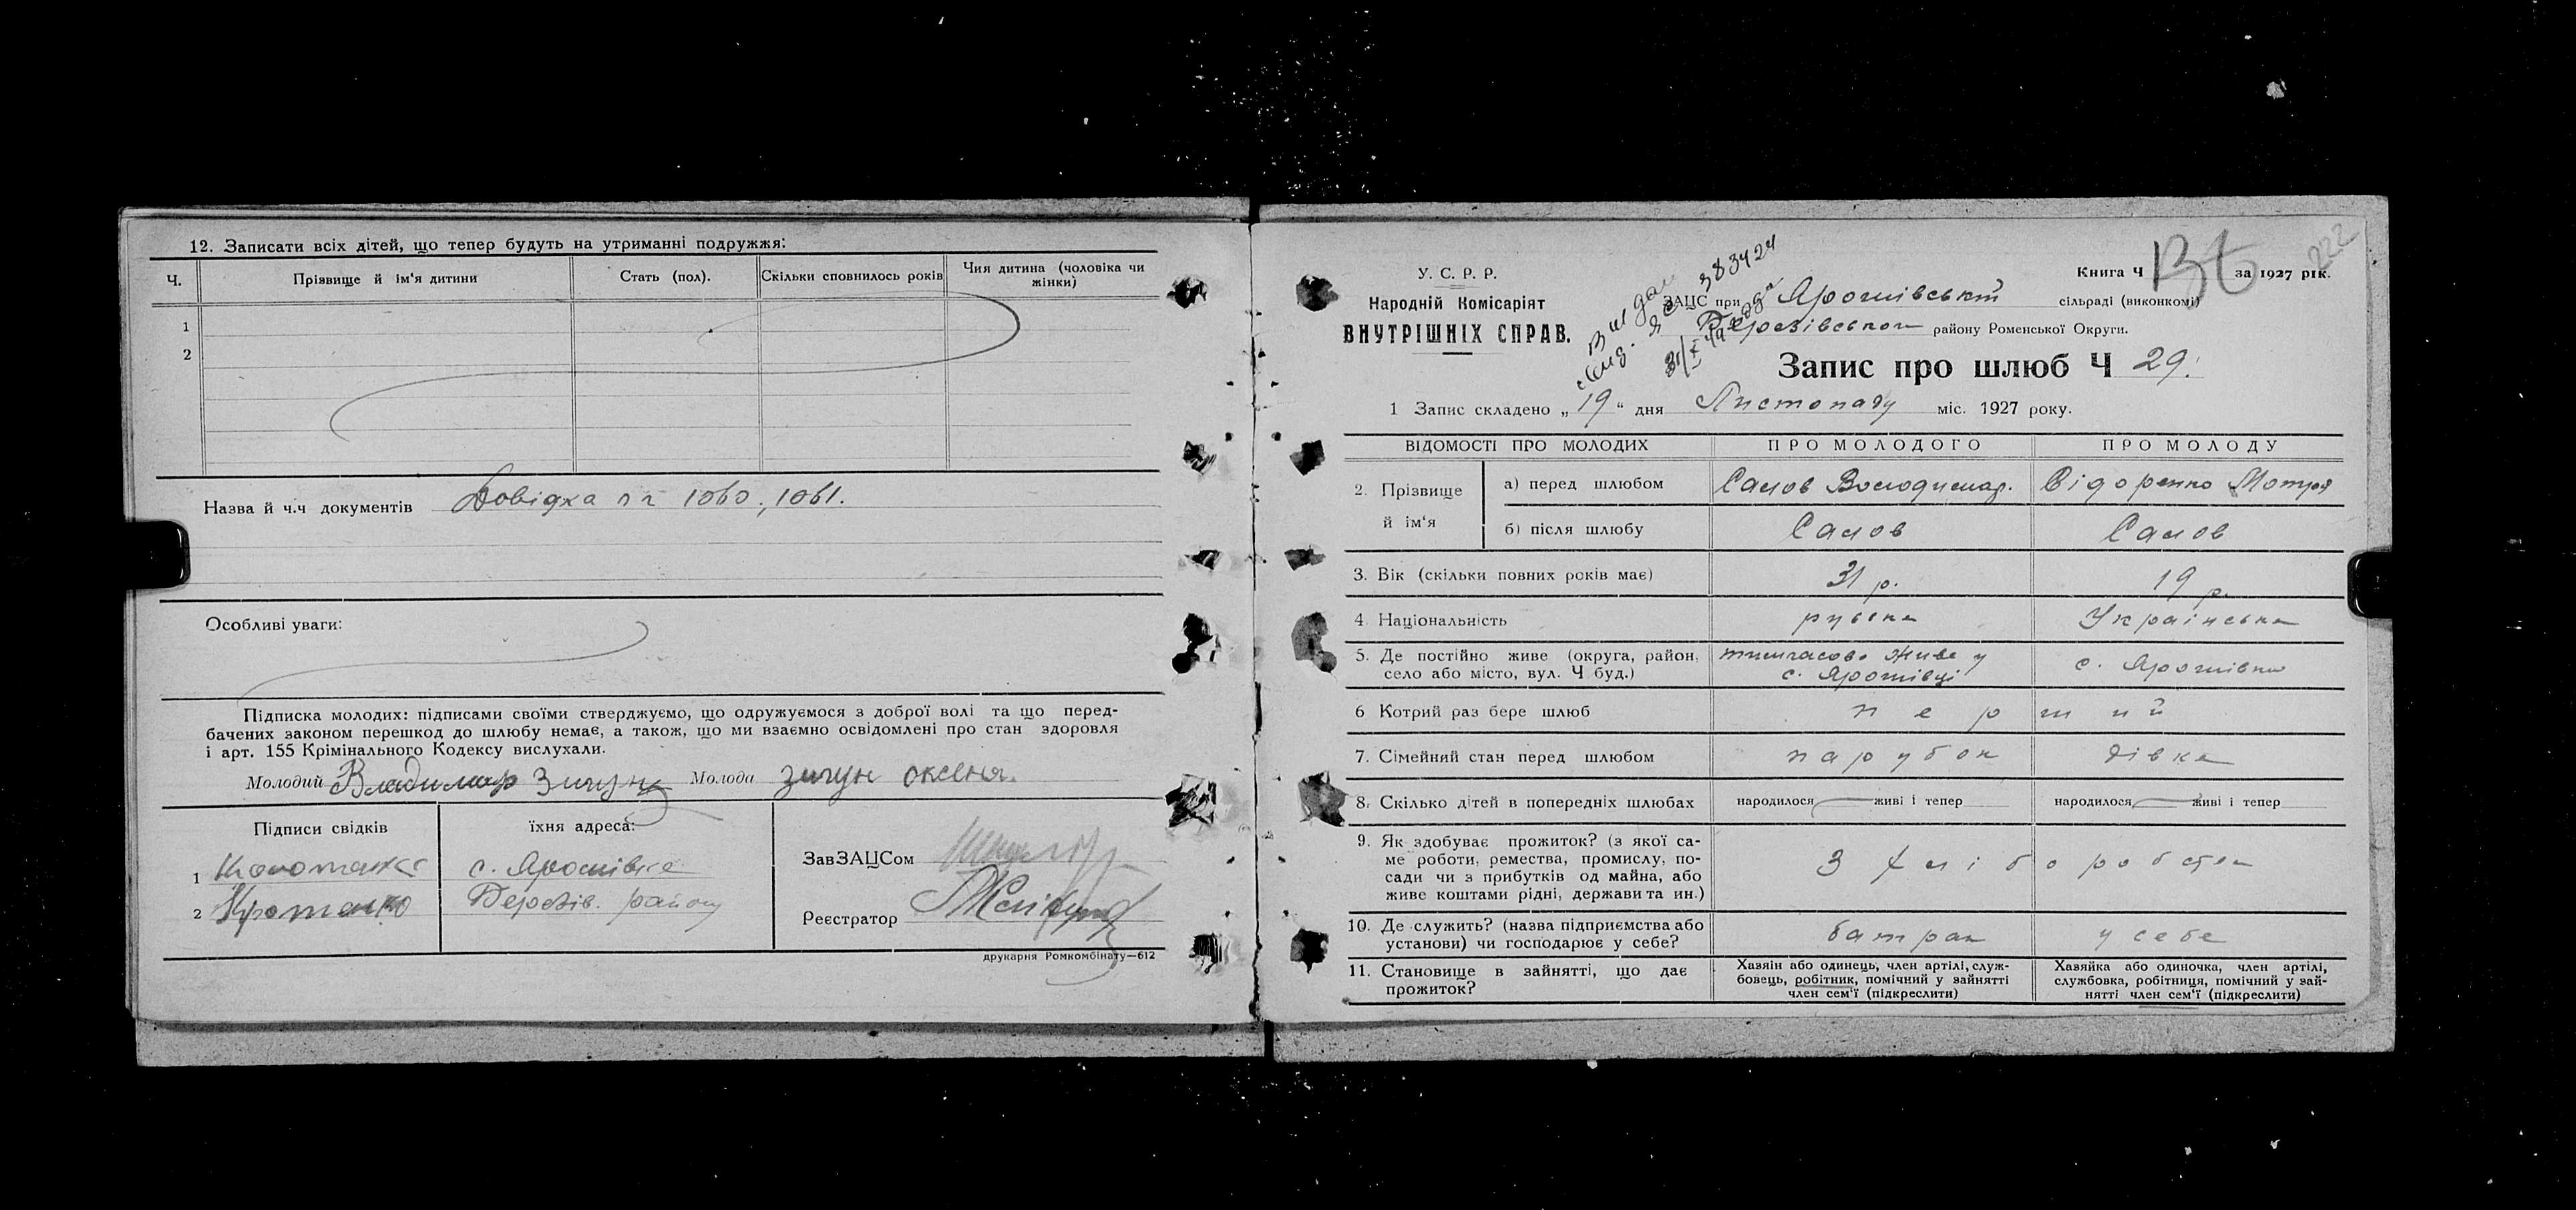 12. Записати всіх дітей, що тепер будуть на утриманні подружжя:
Ч.
Прізвище й ім'я дитини
Стать (пол).
Скільки сповнилось років
Чия дитина (чоловіка чи жінки)
1
2
Назва й ч.ч документів Довідка 1060, 1061.
Особливі уваги:
Підписка молодих: підписами своїми стверджуємо, що одружуємося з доброї волі та що перед-
бачених законом перешкод до шлюбу немає, а також, що ми взаємно освідомлені про стан здоровля
і арт. 155 Крімінального Кодексу вислухали.
Молодий Владимир Зигун Молода зигун оксеня.
Підписи свідків
їхня адреса:
1
с. Ярошівка
2
район
ЗавЗАЦСом
Реєстратор
друкарня Ромкомбінату—612
У. С. Р. Р.
Народній Комісаріят
ВНУТРІШНІХ СПРАВ.
383424
Книга Ч за 1927 рік.
222
ЗАЦС при Ярошівській сільраді (виконкомі)
району Роменської Округи.
Запис про шлюб Ч 29.
1 Запис складено „19" дня Листопаду міс. 1927 року.
ВІДОМОСТІ ПРО МОЛОДИХ
ПРО МОЛОДОГО
ПРО МОЛОДУ
2. Прізвище й ім'я
а) перед шлюбом
Самов Володимар.
Сидоренко Мотря
б) після шлюбу
Самов
Самов
3. Вік (скільки повних років має)
31 р.
19 р.
4 Національність
руська
Українська
5. Де постійно живе (округа, район,
село або місто, вул. Ч буд.)
тимчасово живе у
с. Ярошівці
с. Ярошівка
6 Котрий раз бере шлюб
перший
7. Сімейний стан перед шлюбом
парубок
дівка
8. Скілько дітей в попередніх шлюбах
народилося живі і тепер
народилося живі і тепер
9. Як здобуває прожиток? (з якої са-
ме роботи, ремества, промислу, по-
сади чи з прибутків од майна, або
живе коштами рідні, держави та ин.)
З хліборобства
10. Де служить? (назва підприємства або
установи) чи господарює у себе?
батрак
у себе
11. Становище в зайнятті, що дає
прожиток?
Хазяїн або одинець, член артілі, служ-
бовець, робітник, помічний у зайнятті
член сем'ї (підкреслити)
Хазяйка або одиночка, член артілі,
службовка, робітниця, помічний у зай-
нятті член сем'ї (підкреслити)